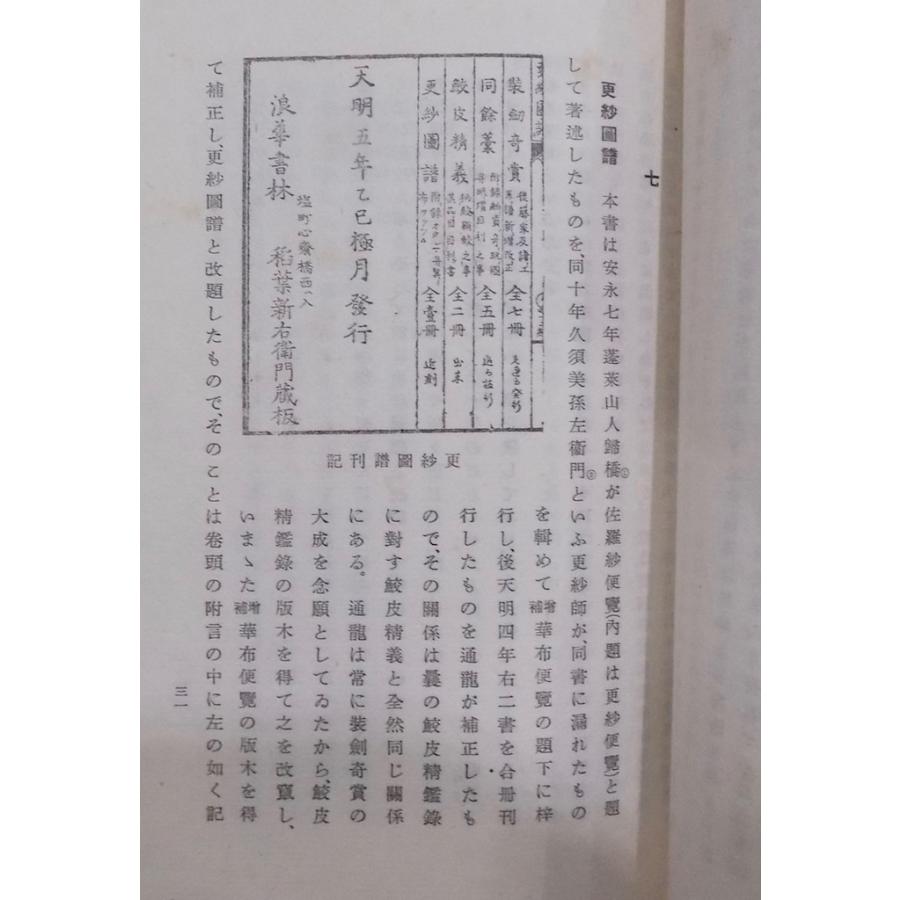 七
更紗圖譜　本書は安永七年蓬萊山人歸橋が佐羅紗便覽(內題は更紗便覽)と題
して著述したものを、同十年久須美孫左衞門といふ更紗師が、同書に漏れたもの
を輯めて增補華布便覽の題下に梓
行し、後天明四年右二書を合册刊
行したものを通龍が補正したも
ので、その關係は曩の鮫皮精鑑錄
に對す鮫皮精義と全然同じ關係
にある。　通龍は常に裝劍奇賞の
大成を念願としてゐたから、鮫皮
精鑑錄の版木を得て之を改竄し、
いまゝた增補華布便覽の版木を得
て補正し、更紗圖譜と改題したもので、そのことは卷頭の附言の中に左の如く記
裝劒奇賞　後藤家及諸工　全七冊
同餘藁　全五冊
鮫皮精義　全二冊　出来
更紗圖譜　全壹冊　近刻
天明五年乙巳極月發行
塩町心齋橋西ヘ入
浪華書林　稻葉新右衞門藏板
更紗圖譜刊記
三一